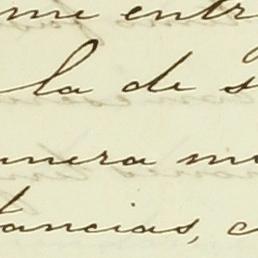 me entr
la de s
nera m
tancias, c